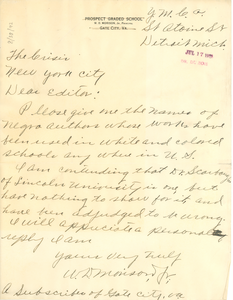 PROSPECT GRADED SCHOOL
GATE CITY, VA.
Y. M. C. A.
Detroit Mich
The Crisis
New York City
Dear Editor:
Please give me the names of
Negro authors whose works have
been used in white and colored
schools any where in U. S.
I am contending that Dr. Scarboro
of Lincoln University is one, but
have nothing to show for it and
have been adjudged to be wrong.
I will appreciate a personal
reply I am
Yours Very truly
A Subscriber of Gate City, Va